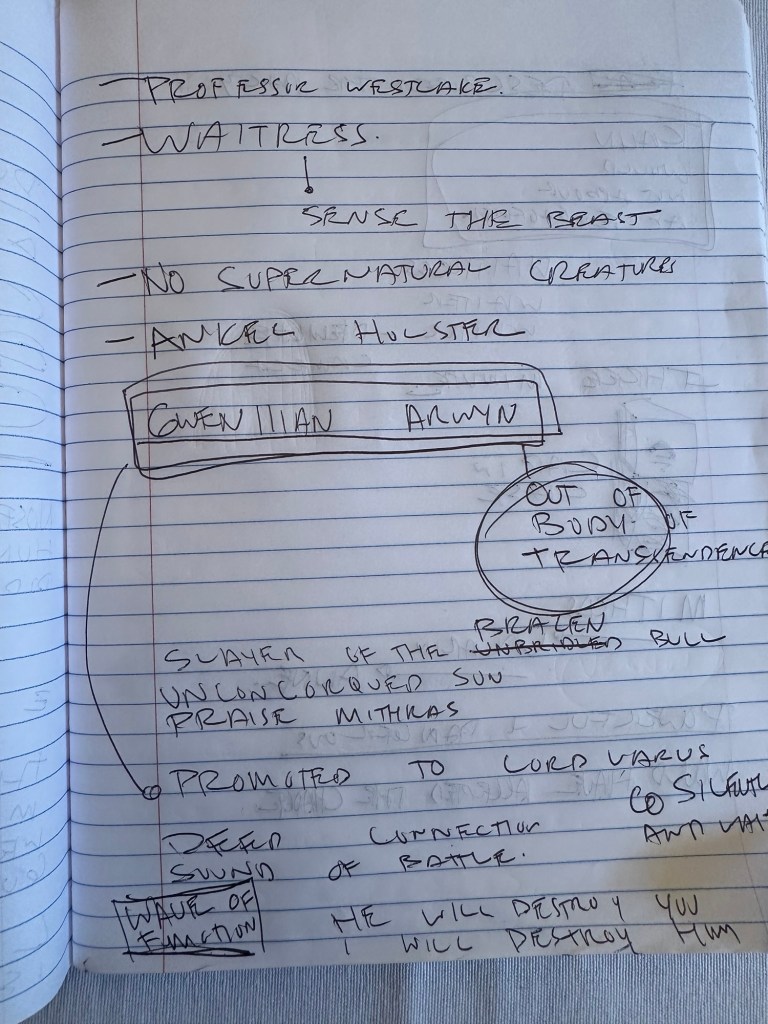 - PROFESSOR WESTLAKE.
- WAITRESS.
SENSE THE BEAST
- NO SUPERNATURAL CREATURES
- ANKEL HOLSTER
GWENLLIAN ARWYN
OUT OF
BODY OF
TRANSENDENCE
BRAZEN
SLAYER OF THE UNBRIDLED BULL
UNCONCORQUED SUN
PRAISE MITHRAS
PROMOTED TO LORD VARUS
SILENTLY
AND WAIT
DEED CONNECTION
SOUND OF BATTLE.
WAVE OF
EMOTION
HE WILL DESTROY YOU
I WILL DESTROY HIM